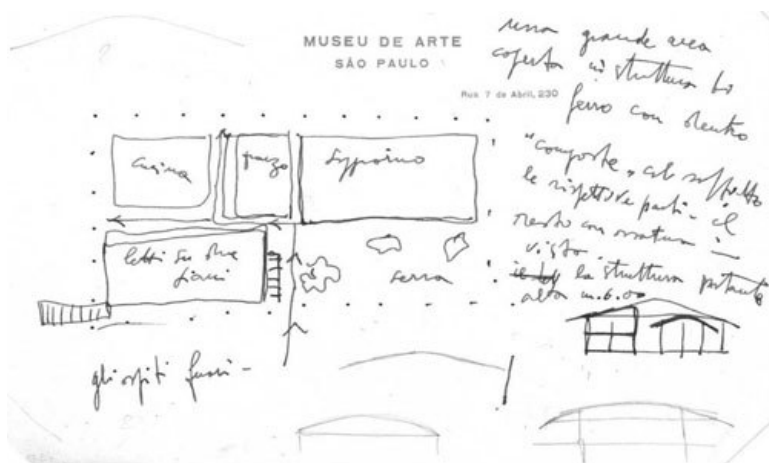 MUSEU DE ARTE
SÃO PAULO
Rua 7 de Abril, 230
una grande area
coperta in struttura di
ferro con dentro
"composte" col soffitto
le rispettive parti - il
resto con
vista.
la struttura portante
alta m. 6.00
cucina
pranzo
soggiorno
letti su due
piani
serra
gli ospiti fuori -